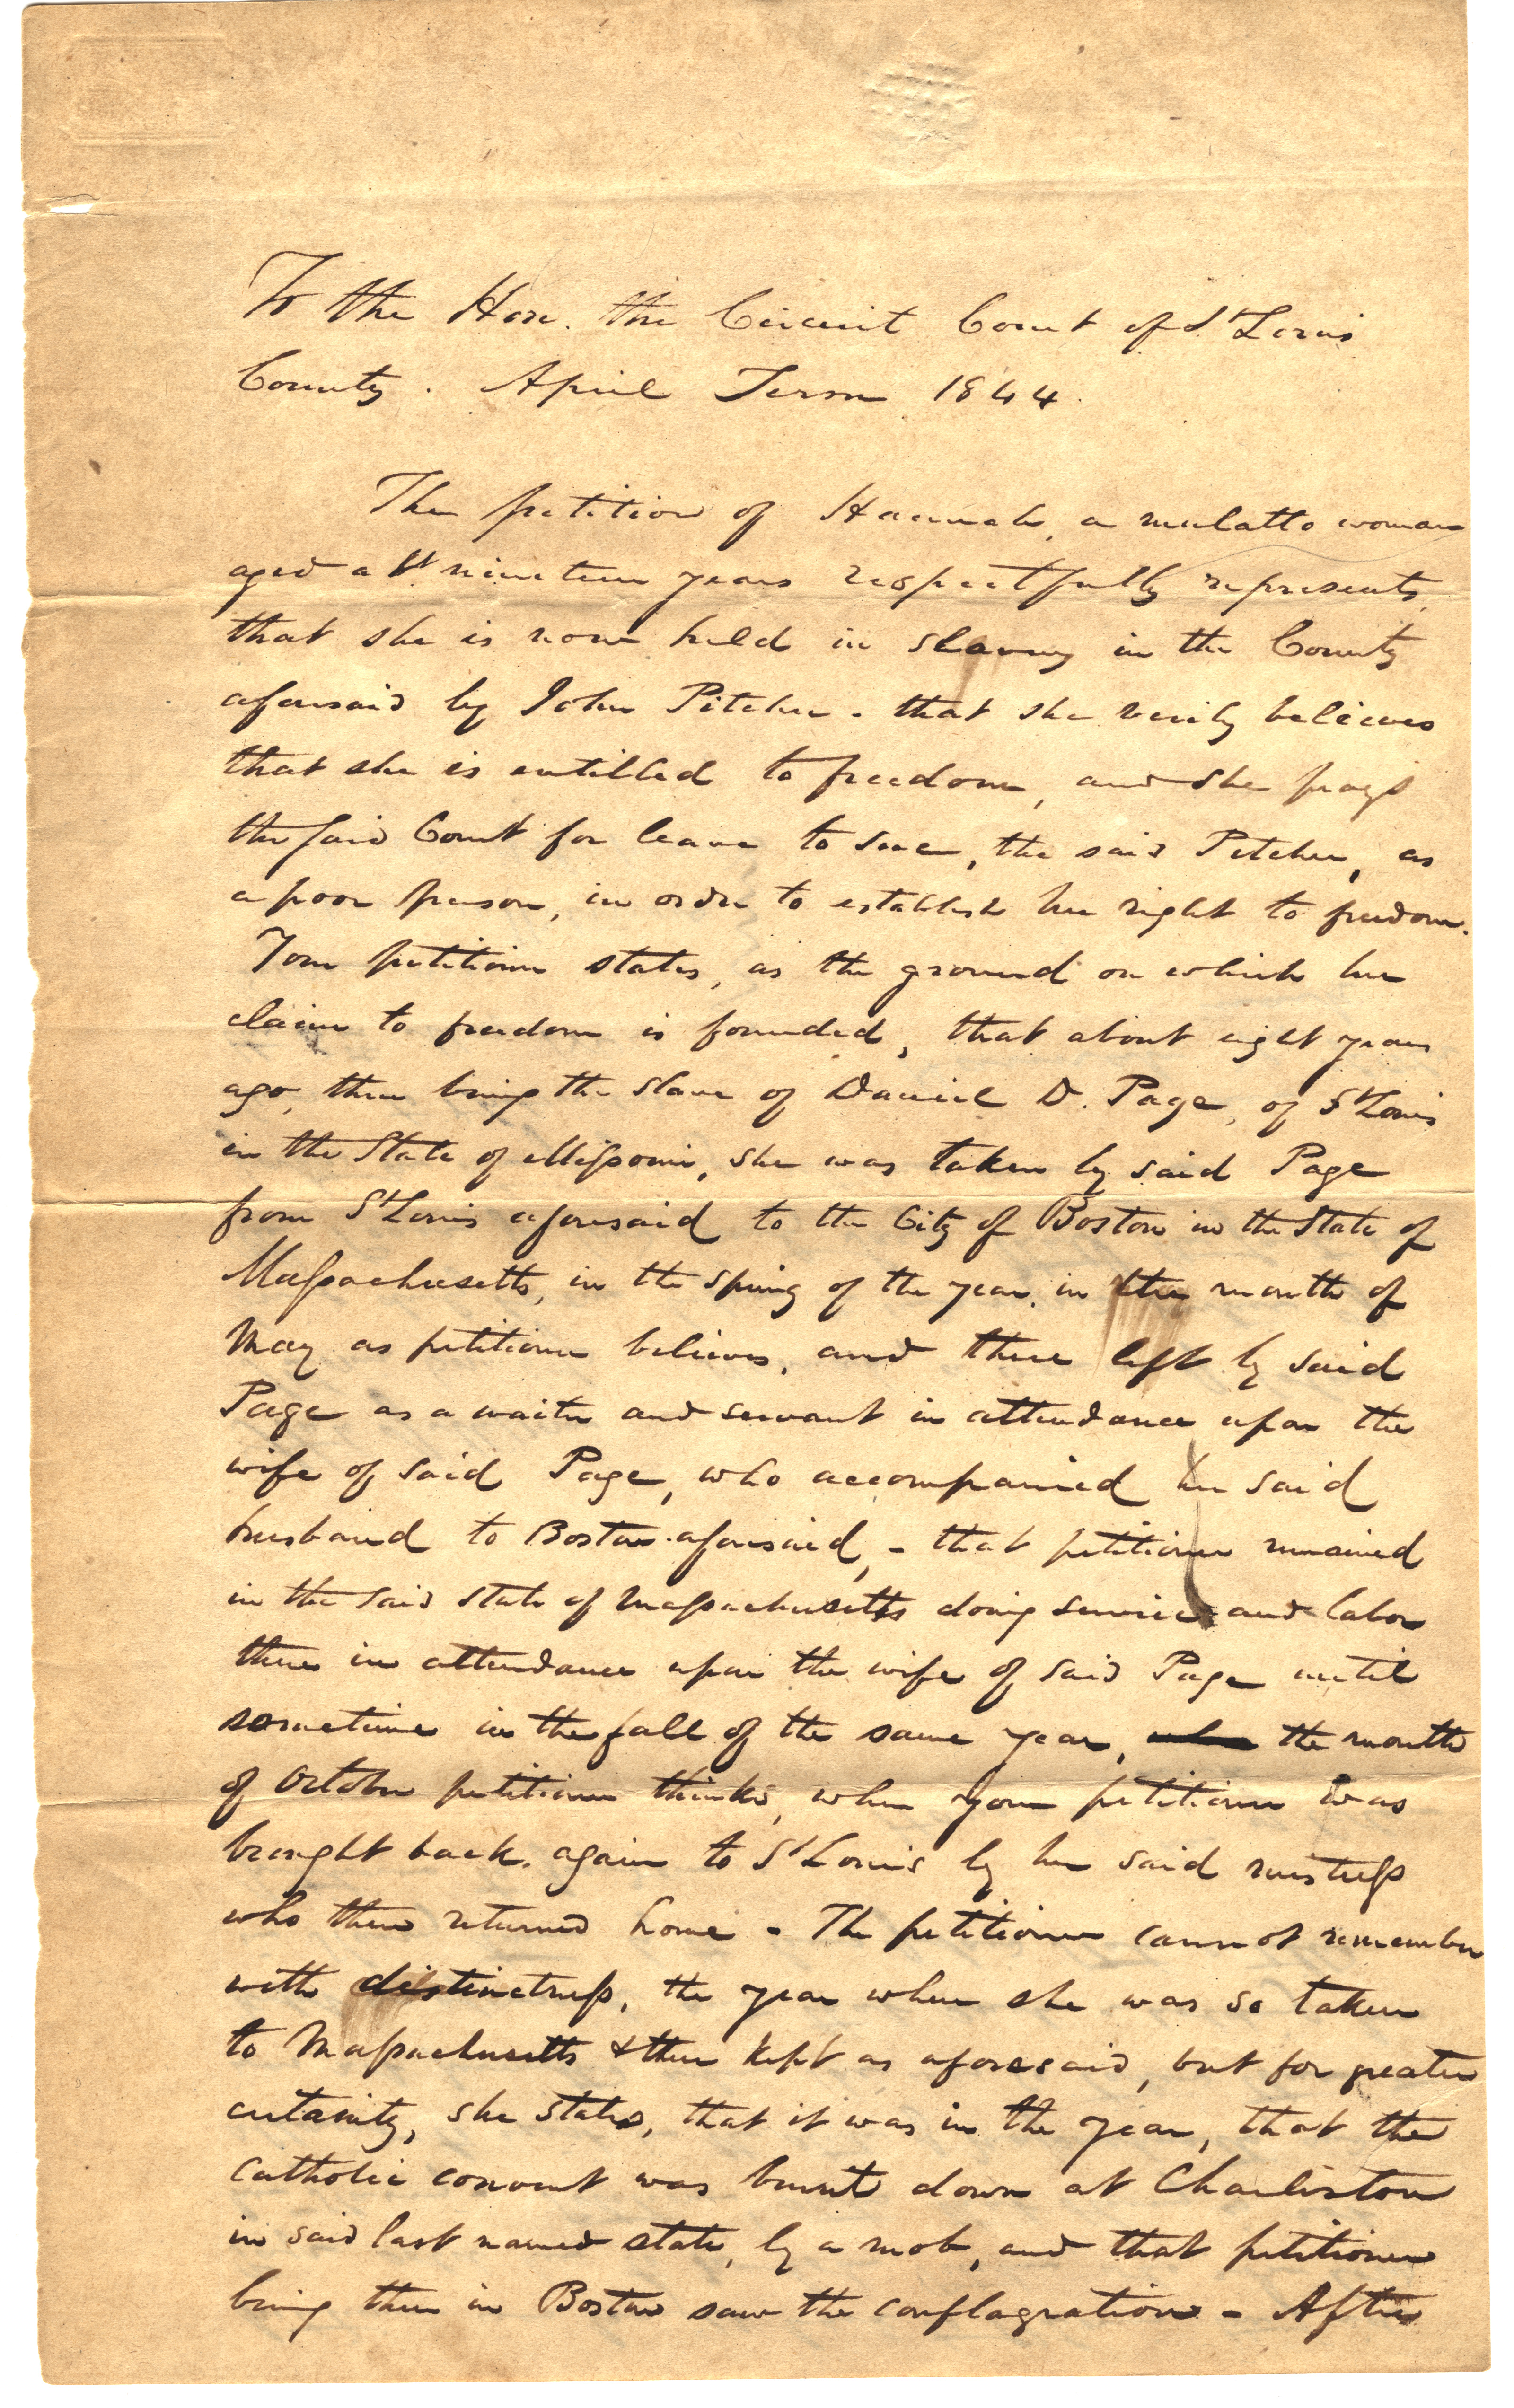 To the Hon. the Circuit Court of St Louis
County. April Term 1844.
The petition of Hannah, a mulatto woman
aged abt nineteen years respectfully represents,
that she is now held in slavery in the County
aforesaid by John Pitcher - that she verily believes
that she is entitled to freedom, and she prays
the said Court for leave to sue, the said Pitcher, as
a poor person, in order to establish her right to freedom.
Your petitioner states, as the ground on which her
claim to freedom is founded, that about eight years
ago, then being the slave of Daniel D. Page, of St Louis
in the State of Missouri, she was taken by said Page
from St Louis aforesaid to the City of Boston in the State of
Massachusetts, in the spring of the year, in the month of
May as petitioner believes, and there left by said
Page as a waiter and servant in attendance upon the
wife of said Page, who accompanied her said
husband to Boston aforesaid, - that petitioner remained
in the said State of Massachusetts doing service and labor
there in attendance upon the wife of said Page until
sometime in the fall of the same year, the month
of October petitioner thinks, when your petitioner was
brought back again to St Louis by her said mistress
who then returned home - The petitioner cannot remember
with distinctness, the year when she was so taken
to Massachusetts & there kept as aforesaid, but for greater
certainty, she states, that it was in the year, that the
Catholic convent was burnt down at Charleston
in said last named state, by a mob, and that petitioner
being then in Boston saw the conflagration - After